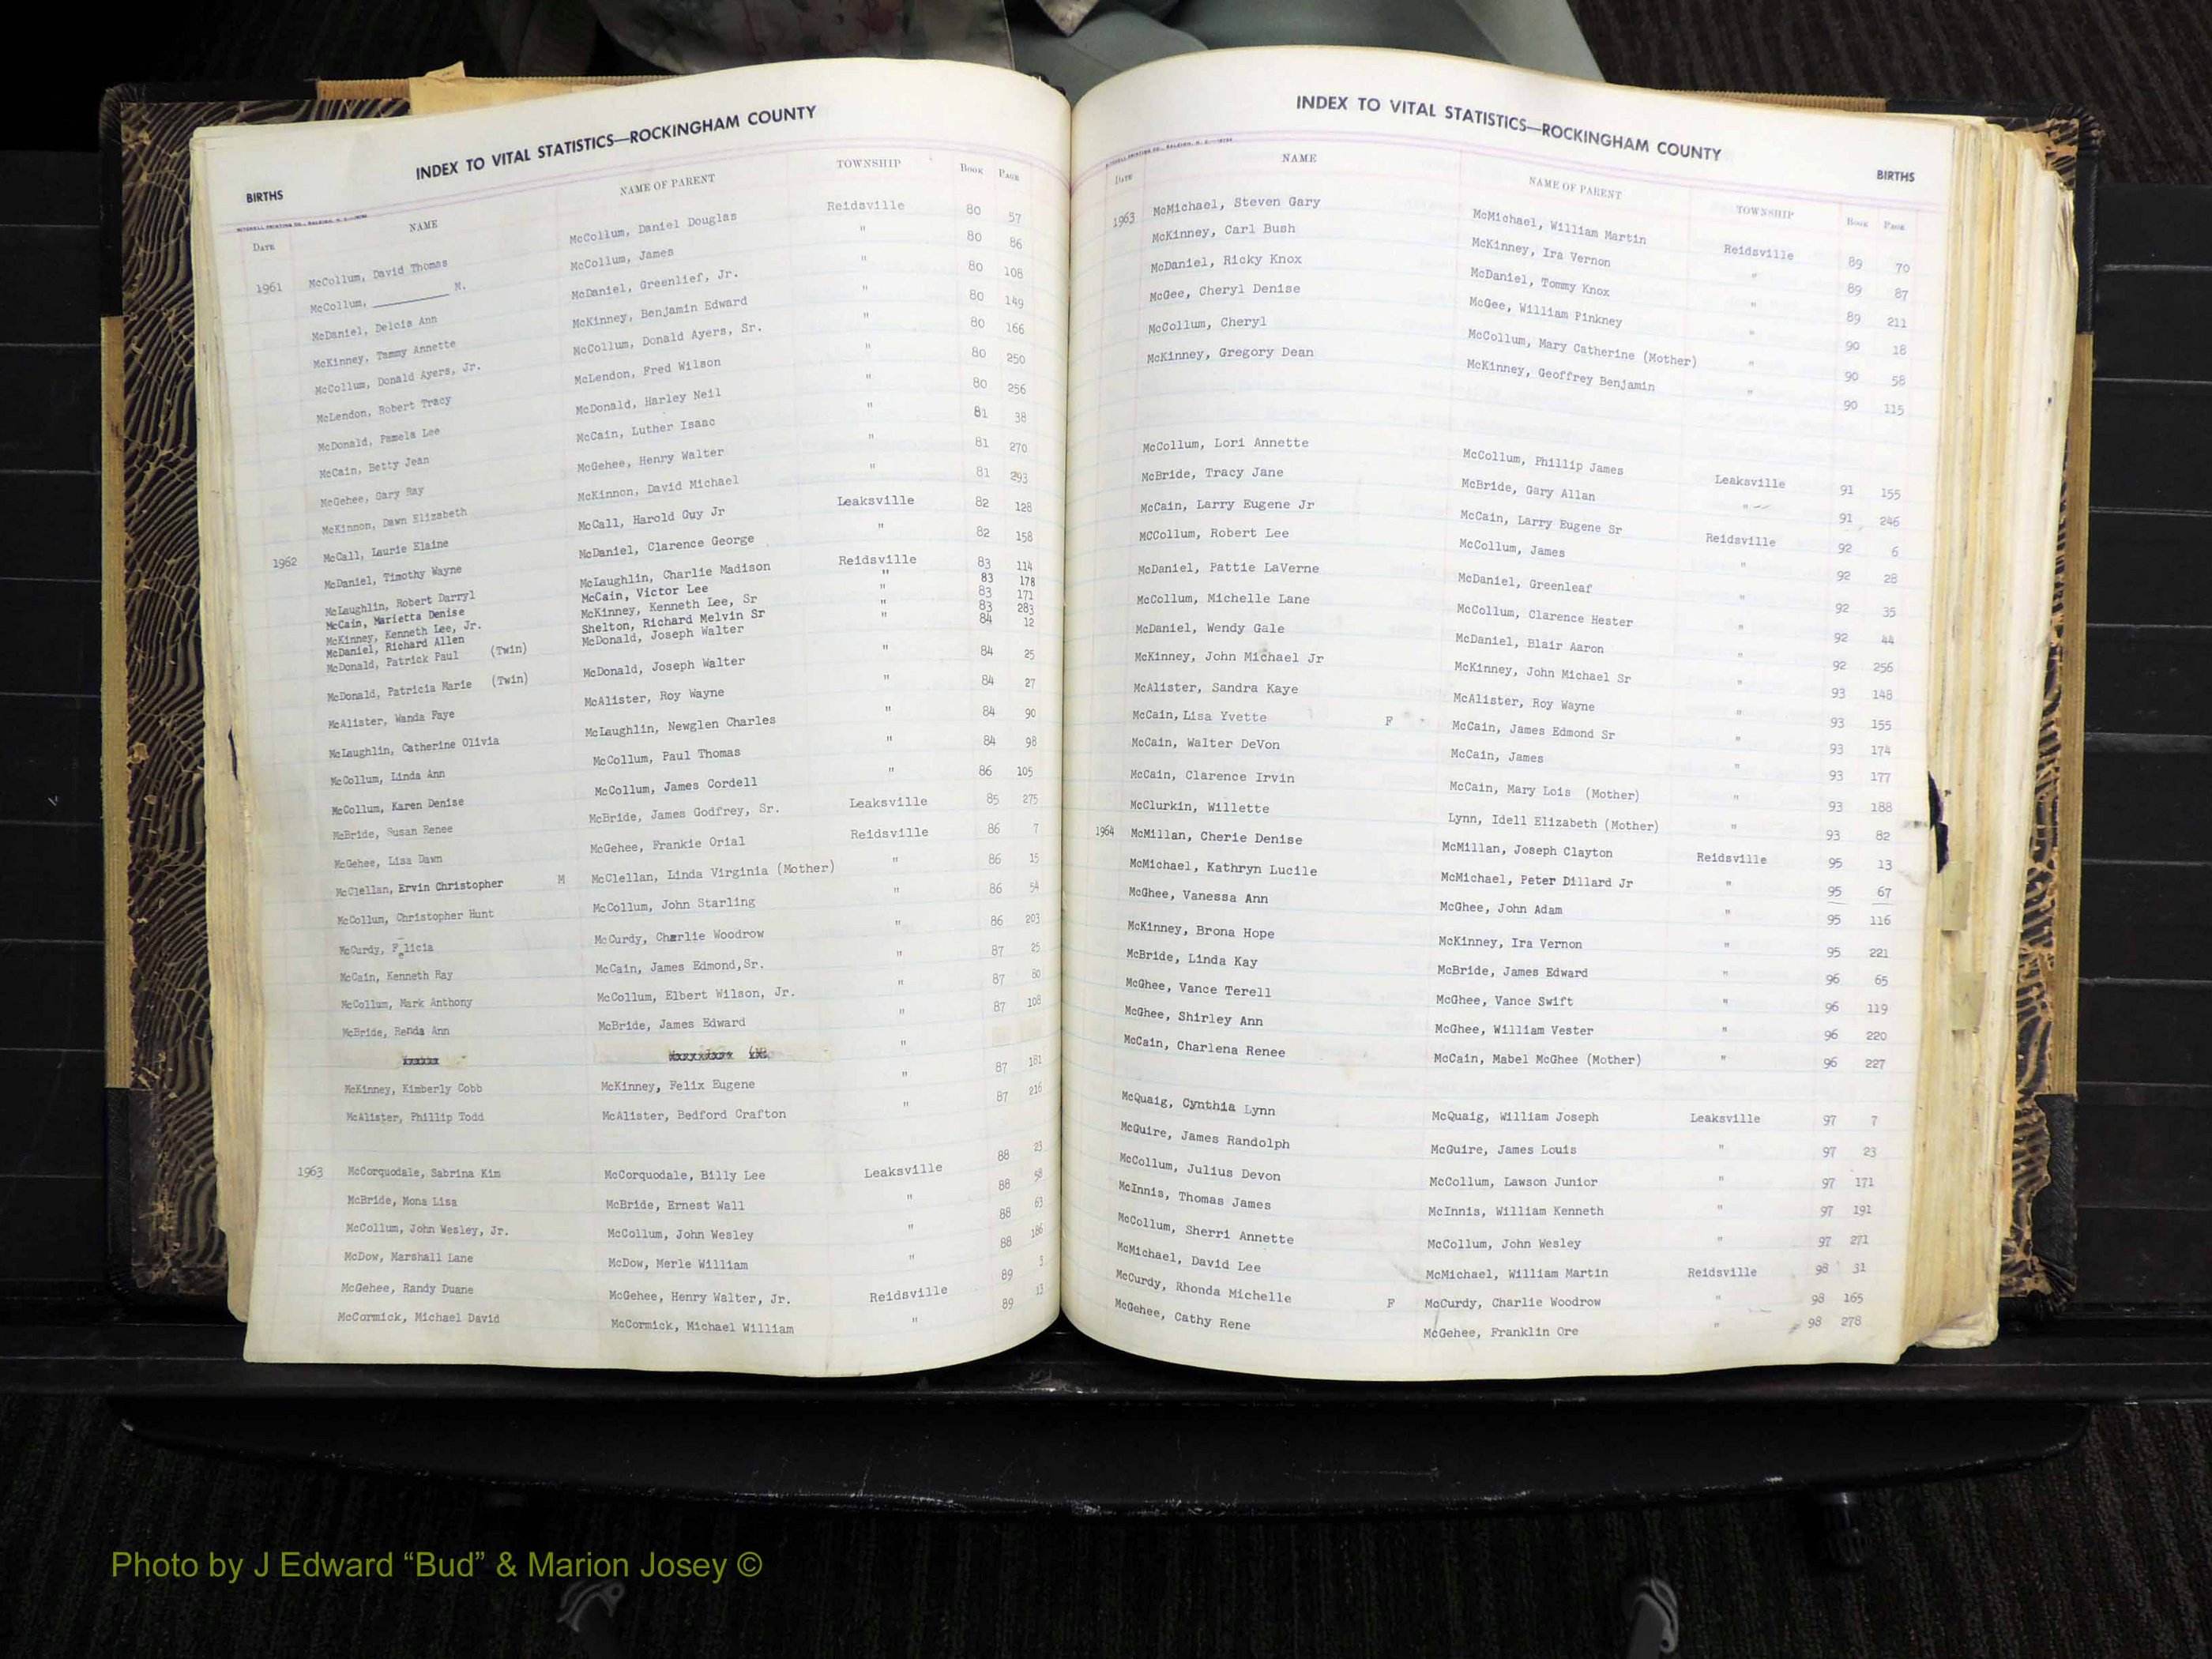 INDEX TO VITAL STATISTICS—ROCKINGHAM COUNTY
BIRTHS
DATE NAME NAME OF PARENT TOWNSHIP BOOK PAGE
1961 McCollum, David Thomas McCollum, Daniel Douglas Reidsville 80 57
McCollum, __________ M. McCollum, James " 80 86
McDaniel, Delois Ann McDaniel, Greenlief, Jr. " 80 108
McKinney, Tammy Annette McKinney, Benjamin Edward " 80 149
McCollum, Donald Ayers, Jr. McCollum, Donald Ayers, Sr. " 80 166
McLendon, Robert Tracy McLendon, Fred Wilson " 80 250
McDonald, Pamela Lee McDonald, Harley Neil " 80 256
McCain, Betty Jean McCain, Luther Isaac " 81 38
McGehee, Gary Ray McGehee, Henry Walter " 81 270
McKinnon, Dawn Elizabeth McKinnon, David Michael " 81 293
1962 McCall, Laurie Elaine McCall, Harold Guy Jr Leaksville 82 128
McDaniel, Timothy Wayne McDaniel, Clarence George " 82 158
McLaughlin, Robert Darryl McLaughlin, Charlie Madison Reidsville 83 114
McCain, Marietta Denise McCain, Victor Lee " 83 178
McKinney, Kenneth Lee, Jr. McKinney, Kenneth Lee, Sr " 83 171
McDaniel, Richard Allen Shelton, Richard Melvin Sr " 83 283
McDonald, Patrick Paul (Twin) McDonald, Joseph Walter " 84 12
McDonald, Patricia Marie (Twin) McDonald, Joseph Walter " 84 25
McAlister, Wanda Faye McAlister, Roy Wayne " 84 27
McLaughlin, Catherine Olivia McLaughlin, Newglen Charles " 84 90
McCollum, Linda Ann McCollum, Paul Thomas " 84 98
McCollum, Karen Denise McCollum, James Cordell " 86 105
McBride, Susan Renee McBride, James Godfrey, Sr. Leaksville 85 275
McGehee, Lisa Dawn McGehee, Frankie Orial Reidsville 86 7
McClellan, Ervin Christopher M McClellan, Linda Virginia (Mother) " 86 15
McCollum, Christopher Hunt McCollum, John Starling " 86 54
McCurdy, Felicia McCurdy, Charlie Woodrow " 86 203
McCain, Kenneth Ray McCain, James Edmond,Sr. " 87 25
McCollum, Mark Anthony McCollum, Elbert Wilson, Jr. " 87 80
McBride, Renda Ann McBride, James Edward " 87 108
"
McKinney, Kimberly Cobb McKinney, Felix Eugene " 87 181
McAlister, Phillip Todd McAlister, Bedford Crafton " 87 216
1963 McCorquodale, Sabrina Kim McCorquodale, Billy Lee Leaksville 88 23
McBride, Mona Lisa McBride, Ernest Wall " 88 58
McCollum, John Wesley, Jr. McCollum, John Wesley " 88 63
McDow, Marshall Lane McDow, Merle William " 88 186
McGehee, Randy Duane McGehee, Henry Walter, Jr. Reidsville 89 3
McCormick, Michael David McCormick, Michael William " 89 13
INDEX TO VITAL STATISTICS—ROCKINGHAM COUNTY
BIRTHS
DATE NAME NAME OF PARENT TOWNSHIP BOOK PAGE
1963 McMichael, Steven Gary McMichael, William Martin Reidsville 89 70
McKinney, Carl Bush McKinney, Ira Vernon " 89 87
McDaniel, Ricky Knox McDaniel, Tommy Knox " 89 211
McGee, Cheryl Denise McGee, William Pinkney " 90 18
McCollum, Cheryl McCollum, Mary Catherine (Mother) " 90 58
McKinney, Gregory Dean McKinney, Geoffrey Benjamin " 90 115
McCollum, Lori Annette McCollum, Phillip James Leaksville 91 155
McBride, Tracy Jane McBride, Gary Allan " 91 246
McCain, Larry Eugene Jr McCain, Larry Eugene Sr Reidsville 92 6
MCCollum, Robert Lee McCollum, James " 92 28
McDaniel, Pattie LaVerne McDaniel, Greenleaf " 92 35
McCollum, Michelle Lane McCollum, Clarence Hester " 92 44
McDaniel, Wendy Gale McDaniel, Blair Aaron " 92 256
McKinney, John Michael Jr McKinney, John Michael Sr " 93 148
McAlister, Sandra Kaye McAlister, Roy Wayne " 93 155
McCain, Lisa Yvette F McCain, James Edmond Sr " 93 174
McCain, Walter DeVon McCain, James " 93 177
McCain, Clarence Irvin McCain, Mary Lois (Mother) " 93 188
McClurkin, Willette Lynn, Idell Elizabeth (Mother) " 93 82
1964 McMillan, Cherie Denise McMillan, Joseph Clayton Reidsville 95 13
McMichael, Kathryn Lucile McMichael, Peter Dillard Jr " 95 67
McGhee, Vanessa Ann McGhee, John Adam " 95 116
McKinney, Brona Hope McKinney, Ira Vernon " 95 221
McBride, Linda Kay McBride, James Edward " 96 65
McGhee, Vance Terell McGhee, Vance Swift " 96 119
McGhee, Shirley Ann McGhee, William Vester " 96 220
McCain, Charlena Renee McCain, Mabel McGhee (Mother) " 96 227
McQuaig, Cynthia Lynn McQuaig, William Joseph Leaksville 97 7
McGuire, James Randolph McGuire, James Louis " 97 23
McCollum, Julius Devon McCollum, Lawson Junior " 97 171
McInnis, Thomas James McInnis, William Kenneth " 97 191
McCollum, Sherri Annette McCollum, John Wesley " 97 271
McMichael, David Lee McMichael, William Martin Reidsville 98 31
McCurdy, Rhonda Michelle F McCurdy, Charlie Woodrow " 98 165
McGehee, Cathy Rene McGehee, Franklin Ore " 98 278
Photo by J Edward “Bud” & Marion Josey ©